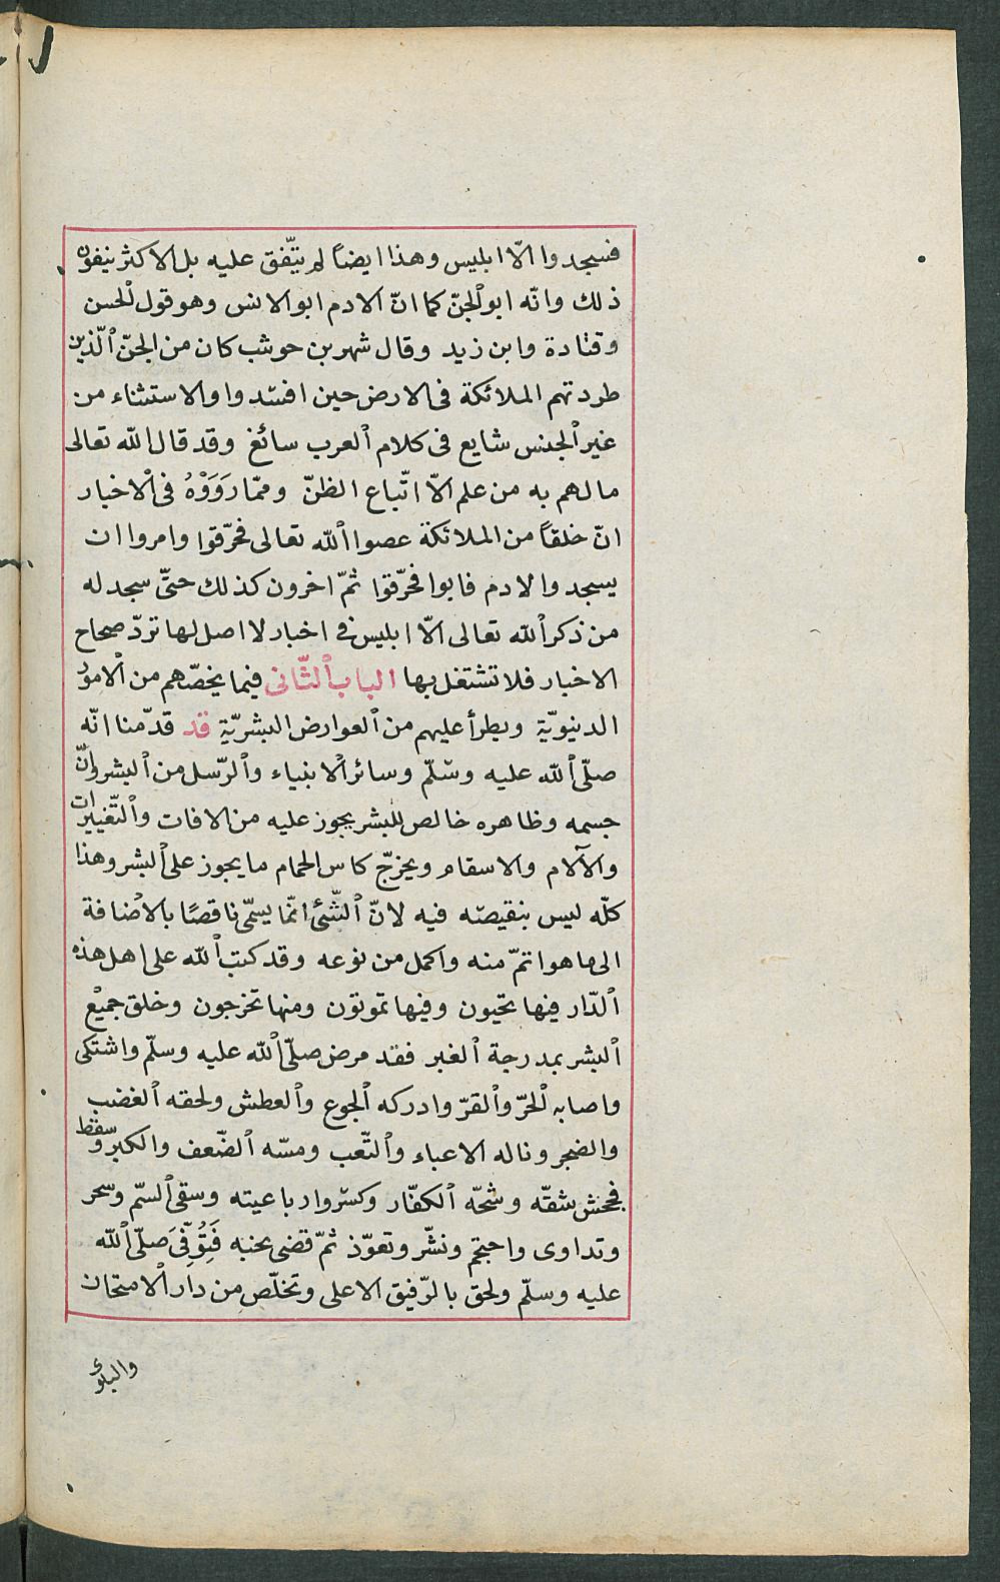 فسجدوا الّا ابليس وهذا ايضاً لم يتّفق عليه بل الاكثر ينفون
ذلك وانّه ابو الجنّ كما انّ الادم ابو الانس وهو قول الحسن
وقتادة وابن زيد وقال شهر بن حوشب كان من الجنّ الّذين
طردتهم الملائكة فى الارض حين افسدوا والاستثناء من
غير الجنس شايع فى كلام العرب سائغ وقد قال الله تعالى
ما لهم به من علم الّا اتّباع الظنّ وممّا رَوَوْهُ فى الاخبار
انّ خلقاً من الملائكة عصوا الله تعالى فحرّقوا وامروا ان
يسجدوا لادم فابوا فحرّقوا ثمّ اخرون كذلك حتىّ سجد له
من ذكر الله تعالى الّا ابليس فى اخبار لا اصل لها تردّ صحاح
الاخبار فلا تشتغل بها الباب الثّانى فيما يخصّهم من الامور
الدنيويّة ويطرأ عليهم من العوارض البشريّة قد قدّمنا انّه
صلّى الله عليه وسلّم وسائر الانبياء والرّسل من البشر وانّ
جسمه وظاهره خالص للبشر يجوز عليه من الافات والتّغييرات
والآلام والاسقام ويخرّج كاس الحمام ما يجوز على البشر وهذا
كلّه ليس بنقيصه فيه لانّ الشّئ انّما يسمّى ناقصًا بالاضافة
الى ما هو اتمّ منه واكمل من نوعه وقد كتب الله على اهل هذه
الدّار فيها تحيون وفيها تموتون ومنها تخرجون وخلق جميع
البشر بمدرجة الغير فقد مرض صلّى الله عليه وسلّم واشتكى
واصابه الحرّ والقرّ وادركه الجوع والعطش ولحقه الغضب
والضجر وناله الاعباء والتّعب ومسّه الضّعف والكبر وسقط
فجحش شقّه وشجّه الكفّار وكسّروا رباعيته وسقى السّم وسحر
وتداوى واحتجم ونشّر وتعوّذ ثمّ قضى نحبه فَتُوُفِّىَ صلّى الله
عليه وسلّم ولحق بالرّفيق الاعلى وتخلّص من دار الامتحان
والبلوى